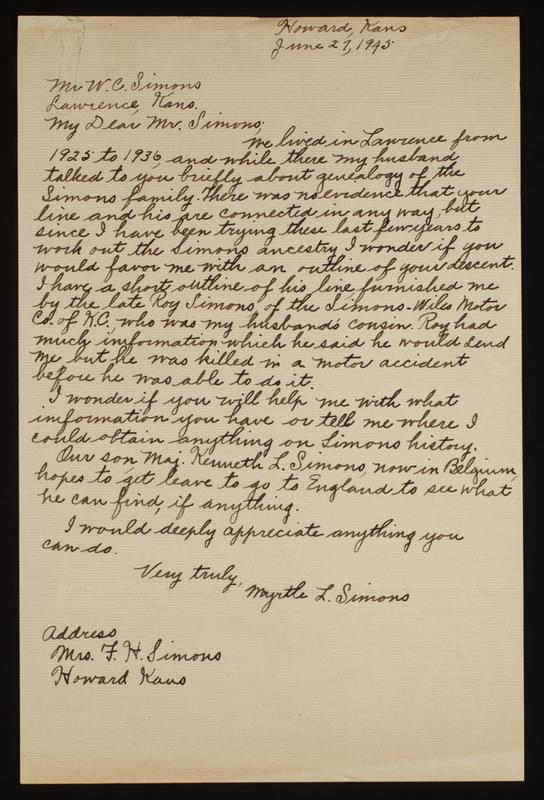 Howard, Kans
June 27, 1945
Mr W. C. Simons
Lawrence, Kans.
My Dear Mr. Simons;
We lived in Lawrence from
1925 to 1936, and while there my husband
talked to you briefly about genealogy of the
Simons family. There was no evidence that your
line and his are connected in any way, but
since I have been trying these last few years to
work out the Simons ancestry I wonder if you
would favor me with an outline of your descent.
I have a short outline of his line furnished me
by the late Roy Simons, of the Simons-Wiles Motor
Co. of K.C. who was my husband's cousin. Roy had
much information which he said he would send
me but he was killed in a motor accident
before he was able to do it.
I wonder if you will help me with what
information you have or tell me where I
could obtain anything on Simons history.
Our son Maj. Kenneth L. Simons, now in Belgium,
hopes to get leave to go to England to see what
he can find, if anything.
I would deeply appreciate anything you
can do.
Very truly,
Myrtle L. Simons
Address
Mrs. F. H. Simons
Howard Kans